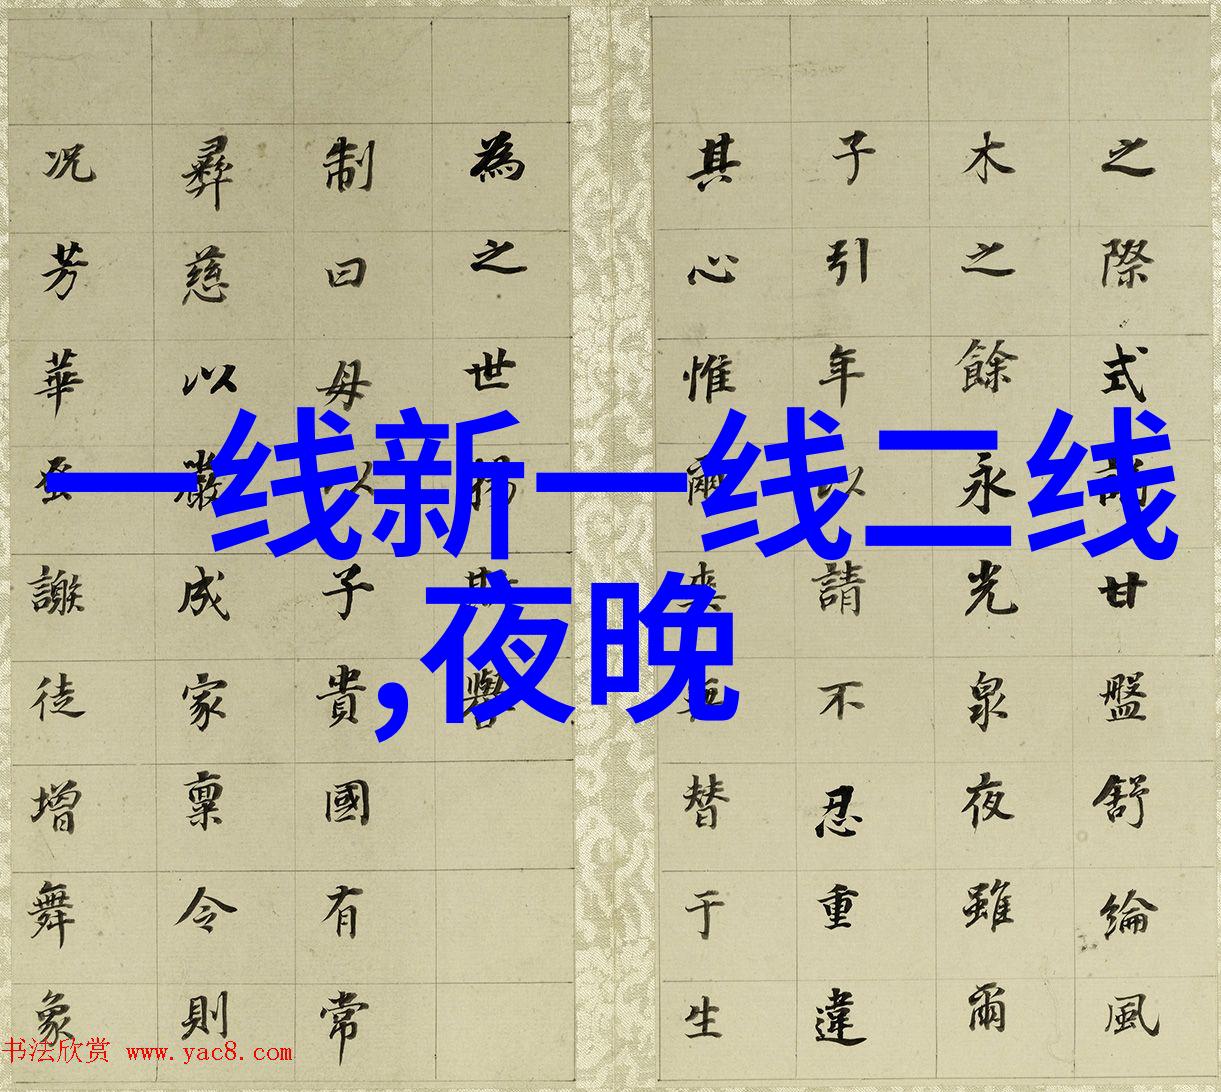 一线新一线二线
,夜晚
之際式
廿盤舒綸風
木之餘永光泉夜雖爾
子引年以請不忍重違
其心惟爾
替于生
為之世
制曰母以子貴國有常
彞慈以嚴成家稟令則
况芳華
謝徒增舞象
书法欣赏 www.yac8.com